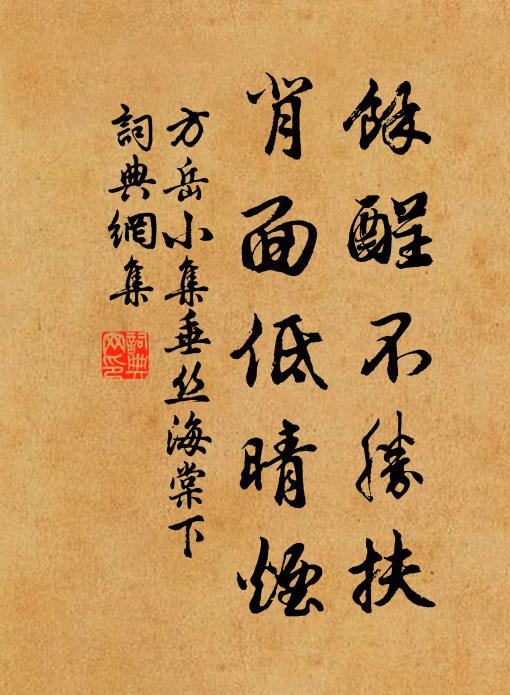 餘酲不勝扶
背面低晴煙
方岳小集垂丝海棠下
詞典網集
詞典
网印